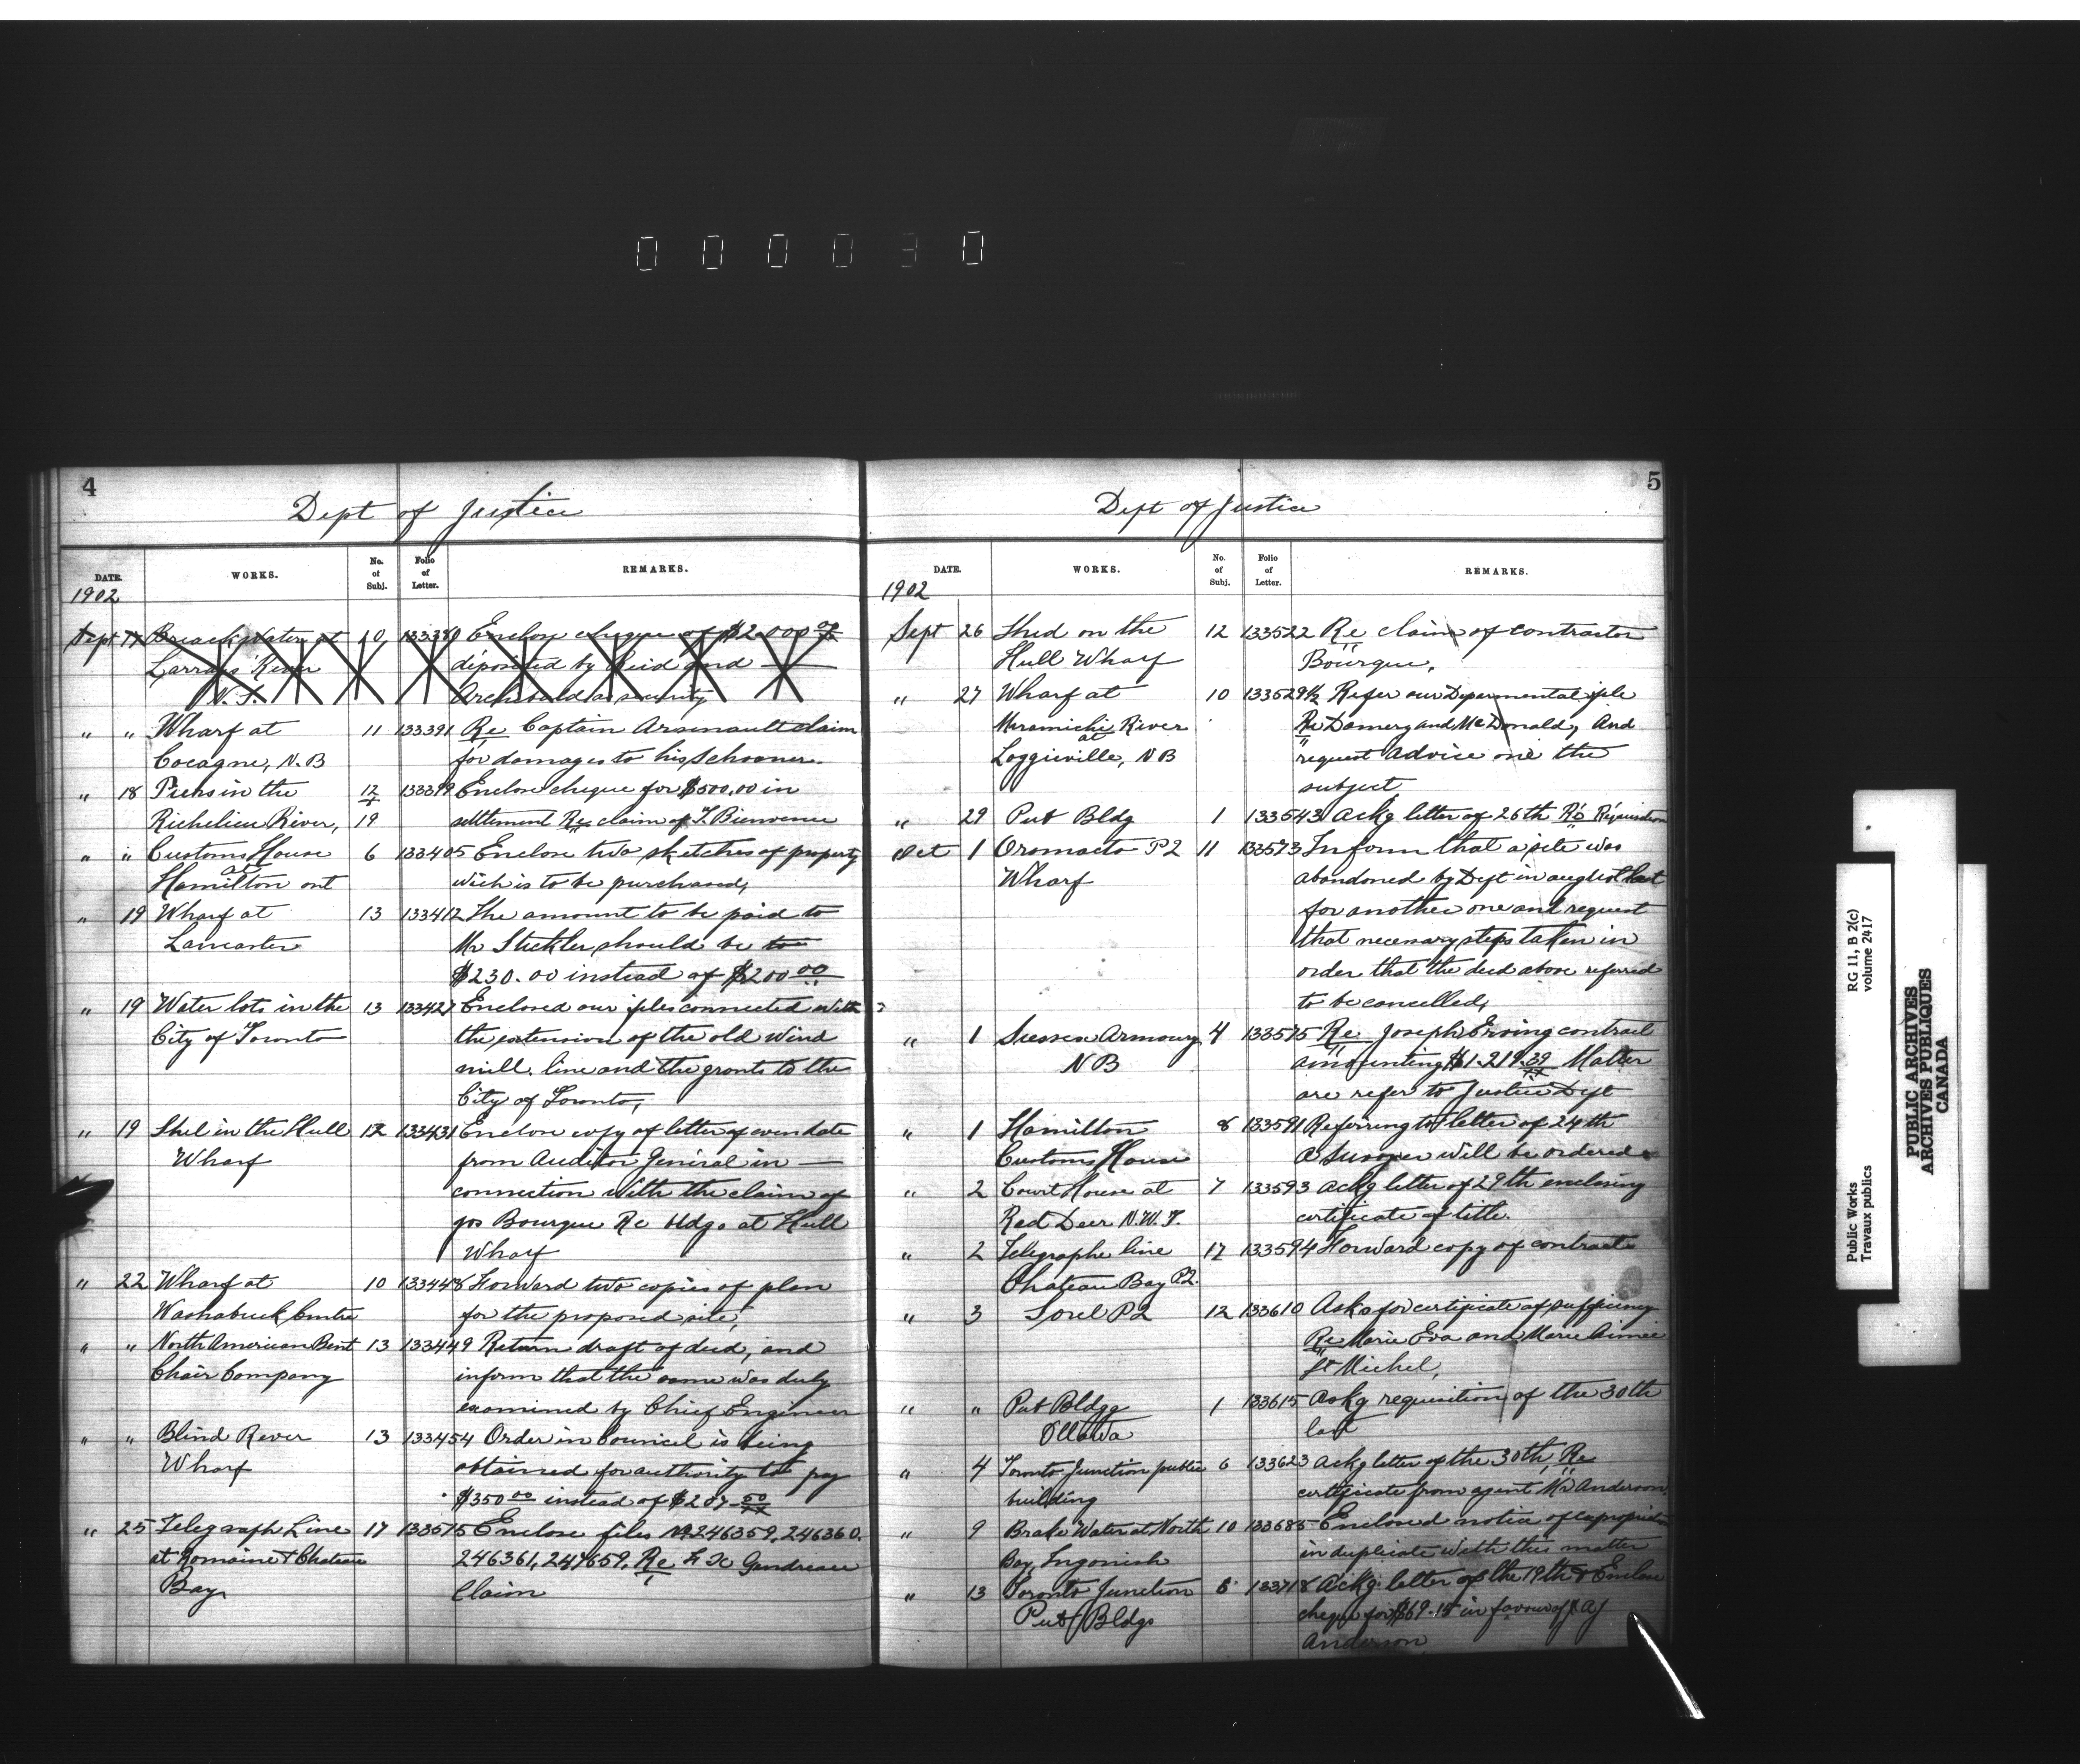 000030
4
Dept of Justice
DATE. WORKS. No. of Subj. Folio of Letter. REMARKS.
1902
Sept 17 Breackwater at 10 133380 Enclose cheque of $2.000 00
Larrays River deposited by Reid and
N.S. Archibald as security
" " Wharf at 11 133391 Re Captain Arsenault claim
Cocagne, N.B for damages to his Schooner.
" 18 Piers in the 12 133399 Enclose cheque for $500.00 in
Richelieu River, 19 settlement Re claim of T. Bienvenue
" " Customs House 6 133405 Enclose two sketches of property
at
Hamilton ont wich is to be purchased,
" 19 Wharf at 13 133412 The amount to be paid to
Lancaster Mr Stickler should be to
$230.00 instead of $200 00
" 19 Water lots in the 13 133427 Enclosed our files connected with
City of Toronto the extension of the old Wind
mill. line and the grants to the
City of Toronto,
" 19 Shel in the Hull 12 133431 Enclose copy of letter of even date
Wharf from Auditor General in
connection with the claim of
Jos Bourque Re bldgs at Hull
Wharf
" 22 Wharf at 10 133448 Forward two copies of plan
Washabuck Centre for the proposed site,
" " North American Bent 13 133449 Return draft of deed, and
Chair Company inform that the same was duly
examined by Chief Engineer
" " Blind River 13 133454 Order in Council is being
Wharf obtained for authority to pay
$350 00 instead of $287 50
" 25 Telegraph Line 17 133515 Enclose files No. 246359, 246360.
at Romaine & Chateau 246361, 247659, Re F. X Gendreau
Bay Claim
5
Dept of Justice
DATE. WORKS. No. of Subj. Folio of Letter. REMARKS.
1902
Sept 26 Shed on the 12 133522 Re claim of contractor
Hull Wharf Bourque,
" 27 Wharf at 10 133529½ Refer our Deparmental file
Miramichi River Re Damery and McDonald, And
at
Loggieville, NB request Advice one the
subject
" 29 Pub Bldg 1 133543 Ackg letter of 26th Re Requisition
Oct 1 Oromocto P2 11 133573 Inform that a site was
Wharf abandoned by Dept in august last
for another one and request
that necessary steps taken in
order that the deed above referred
to be cancelled,
" 1 Sussex Armoury 4 133575 Re Joseph Erving contract
NB amounting $1.219.39 Matter
are refer to Justice Dept
" 1 Hamilton 8 133591 Referring to letter of 24th
Customs House a will be ordered
" 2 Court House at 7 133593 Ackg letter of 29th enclosing
Red Deer N.W.T. certificate of title.
" 2 Telegraphe line 17 133594 Forward copy of contract
Chateau Bay P.Q.
" 3 Sorel PQ 12 133610 Asks for certificate of sufficiency
Re Marie Eva and Marie Aimée
St Michel,
" " Pub Bldgg 1 133615 Askg requisition of the 30th
Ottawa last
" 4 Toronto Junction public 6 133623 Ackg letter of the 30th, Re
building certificate from agent Mr Anderson
" 9 Brake Water at North 10 133685 Enclosed notice of expropriation
Bay, Ingonish in duplicate with this matter
" 13 Toronto Junction 6 133718 Ackg letter of the 19th & Enclose
Pub Bldgs cheque for $69.15 in favour of A J
Anderson
Public Works
Travaux publics
RG 11, B 2(c)
volume 2417
PUBLIC ARCHIVES
ARCHIVES PUBLIQUES
CANADA